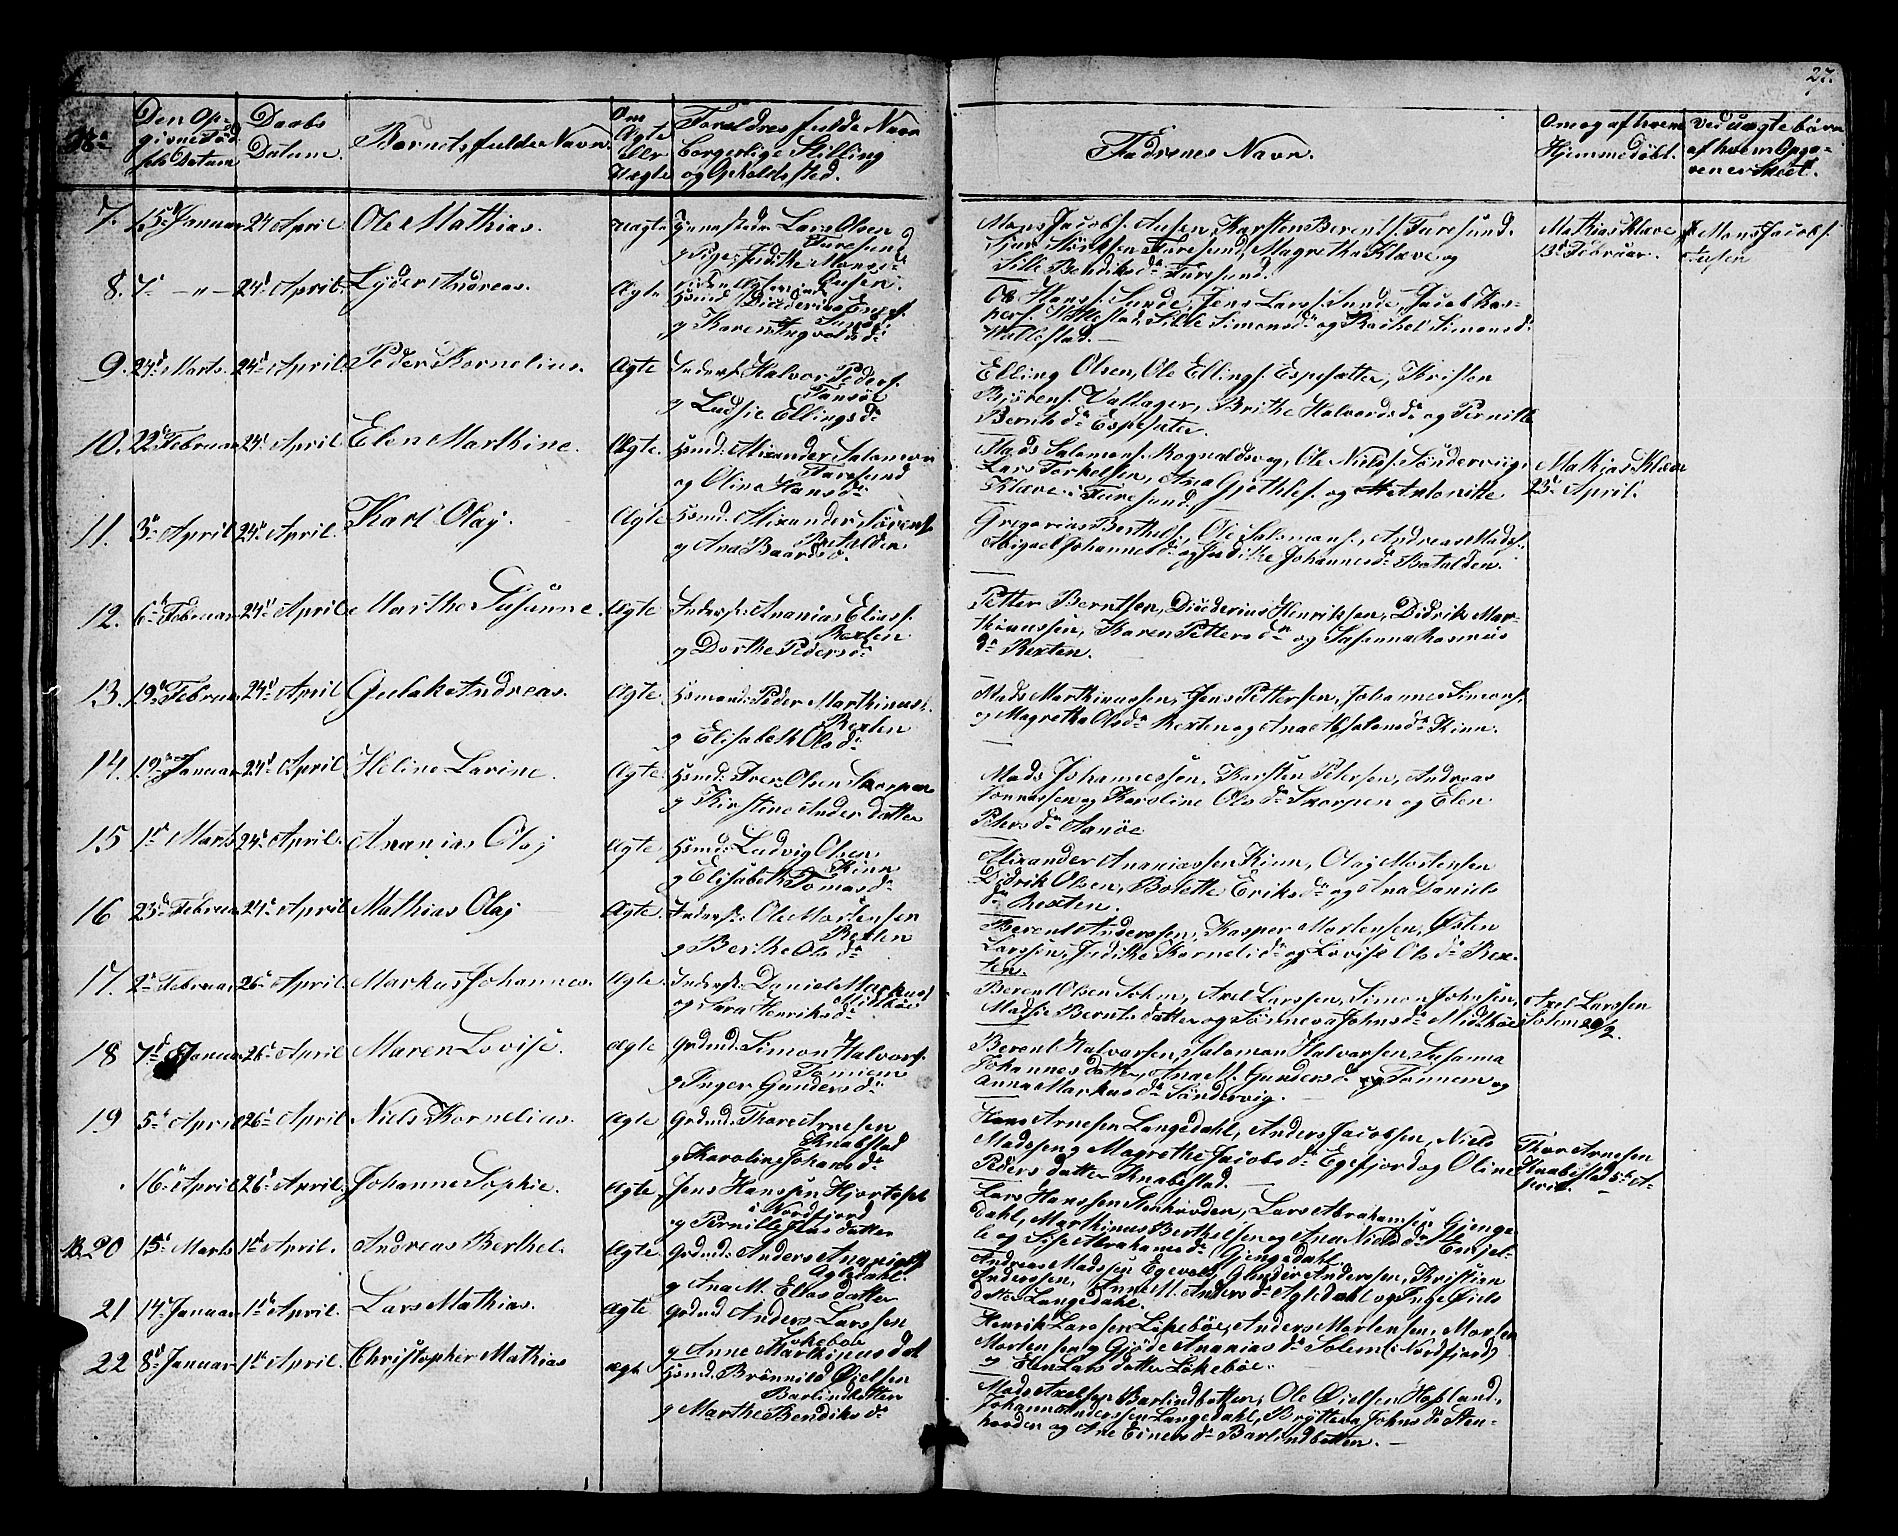 27.
No.
Den Op-
givne Fød-
sels Datum
Daabs
Datum.
Barnets fulde Navn
Om
Ægte
eller
Uægte
Forældres fulde Navn
borgerlige Stilling
og Opholdssted.
Faddernes Navn.
Om og af hvem
Hjemmedøbt.
Ved uægte børn
af hvem Opga-
ven er skeet.
7. 15d Januar 24 April. Ole Mathias. uægte Lars Olsen
Furesund
g Pige Judithe Monsd.
Mons Jacobs. Ausen, Karsten Berents. Furesund.
Furesund, Magretha Klave og
Sille Bendiksd. Furesund.
Mathias Klave
13d Februar.
Mons Jacobs.
Ausen
8. 7d -"- 24d April. Lyder Andreas. Ægte
g Karen
Ole Hans. Sunde, Jens Lars. Sunde, Jacob Kas-
pers. Sille Simonsd. og Rachel Simonsd.
9. 24d Marts. 24d April Peder Kornelius. Ægte Inders. Halvor Peders.
Fansøe
g Ludsie Ellingsd.
Elling Olsen, Ole Ellings. Espesætter, Kristen
Vallager, Brithe Halvordsd. og Pernille
Berntsd. Espesæter.
10. 22d Februar 24d April Elen Marthine. Ægte. Hsmd. Alexander Salomon
Furesund
og Oline Hansd.
Mads Salomons. Rognaldsvog, Ole Niels. Sønderviig,
Lars Torkelsen, Ana Gjetles. og Antonitte
Klave i Furesund.
Mathias Klave
23d April.
11. 3d April 24d April. Karl Olaj. Ægte Hsmd. Alexander Sørens.
Batalden
g Ana Baardsd.
Gregorias Berthels., Ole Salomons., Andreas Mads.
Abigael Johannesd. og Judithe Johannesd. Batalden.
12. 6d Februar 24d April Marthe Susanne. Ægte Inders. Ananias Elias.
Rexten
g Dorthe Pedersd.
Petter Berntsen, Diederius Henriksen, Didrik Mar-
thinussen, Karen Pettersd. og Susanna Rasmus
d. Rexten.
13. 19d Februar 24d April Gulak Andreas. Ægte Hsmand. Peder Marthinus.
Rexten
g Elisabeth Olsd.
Mads Marthinussen, Jens Pettersen, Johannes Simons.
og Magretha Olsd. Rexten og Ana Absalonsd. Kinn.
14. 19d Januar 24d April Heline Lavine. Ægte. Hsmd. Iver Olsen Skorpen
g Kirstine Anders datter
Mads Johannessen, Karsten Petersen, Andreas
Tonnessen og Karoline Olsd. Skorpen og Elen
Petersd. Aanøe
15 1d Marts 24d April. Ananias Olaj Ægte Hsmd. Ludvig Olsen
Kinn
g Elisabeth Tomasd.
Alexander Ananiassen Kinn, Olaj Mortensen
Didrik Olsen, Bolette Eriksd. og Ana Daniels
d. Rexten.
16 23d Februar 24d April Mathias Olaj Ægte. Inders. Ole Mortensen
Rexten
g Berthe Olsd.
Berent Anderssen, Kasper Mortensen, Østen
Larssen, Judithe Kornelid. og Lovise Olsd. Rex-
ten.
17. 2d Februar 26d April Markus Johannes. Ægte. Inders. Daniel Markus
Midtbøe
og Sara Henriksd.
Berent Olsen Solem, Axel Larssen, Simon Johnsen,
Madsie Bernts datter og Sønneva Johnsd. Midtbøe
Axel Larssen
Solem 20/2.
18 7d Januar 26d April Maren Lovise. Ægte Grdmd. Simon Halvors.
Tonnem
g Inger Gundersd.
Berent Halvorsen, Salomon Halvorsen, Susanna
Johannes datter, Ana M. Gundersd. Tonnem og
Anna Markusd. Søndervig.
19 5d April 26d April. Niels Kornelius. Ægte. Grdmd. Thore Arnesen
Knabestad
g Karoline Johansd.
Hans Arnesen Langedahl, Anders Jacobsen, Niels
Madsen g Magrethe Jacobsd. Egefjord og Oline
Peders datter Knabestad.
Thor Arnesen
Knabestad 5te A-
pril.
16d April 26d April. Johanne Sophie. Ægte Jens Hanssen Hjorteset
i Nordfjord
og Pernille datter
Lars Hanssen Stenhovden, Lars Abrahamsen Gjenge
dahl, Marthinus Berthelsen og Ana Nielsd.
og Abrahamsd. Gjengedahl.
20 15d Marts 1d April. Andreas Berthel. Ægte Grdmd. Anders Ananias.
Agledahl.
g Ana M. Elias datter
Andreas Madssen Egevol, Gunder Anderssen, Kristian
Anderssen, Anne M. Andersd. Agledahl og Inge Øiels
datter Langedahl.
21 14d Januar 1d April. Lars Mathias. Ægte Grdmd Anders Larssen
Løkebøe
g Anne Marthinusdat
Henrik Larssen Løkebøe, Anders Mortensen, Morten
Mortensen g Gjøde Ananiasd. Solem (i Nordfjord)
g Elen Lars datter Løkebøe.
22 8d Januar 1d April. Christopher Mathias Ægte Hsmd. Brønnild Øielsen
Barlindbotten
g Marthe Bendiksd.
Mads Axelsen Barlindbotten, Ole Øielsen Høiland,
Johannes Anderssen Langedahl, Brytteva Johnsd. Sten-
hovden og Ane Einersd. Barlindbotten.